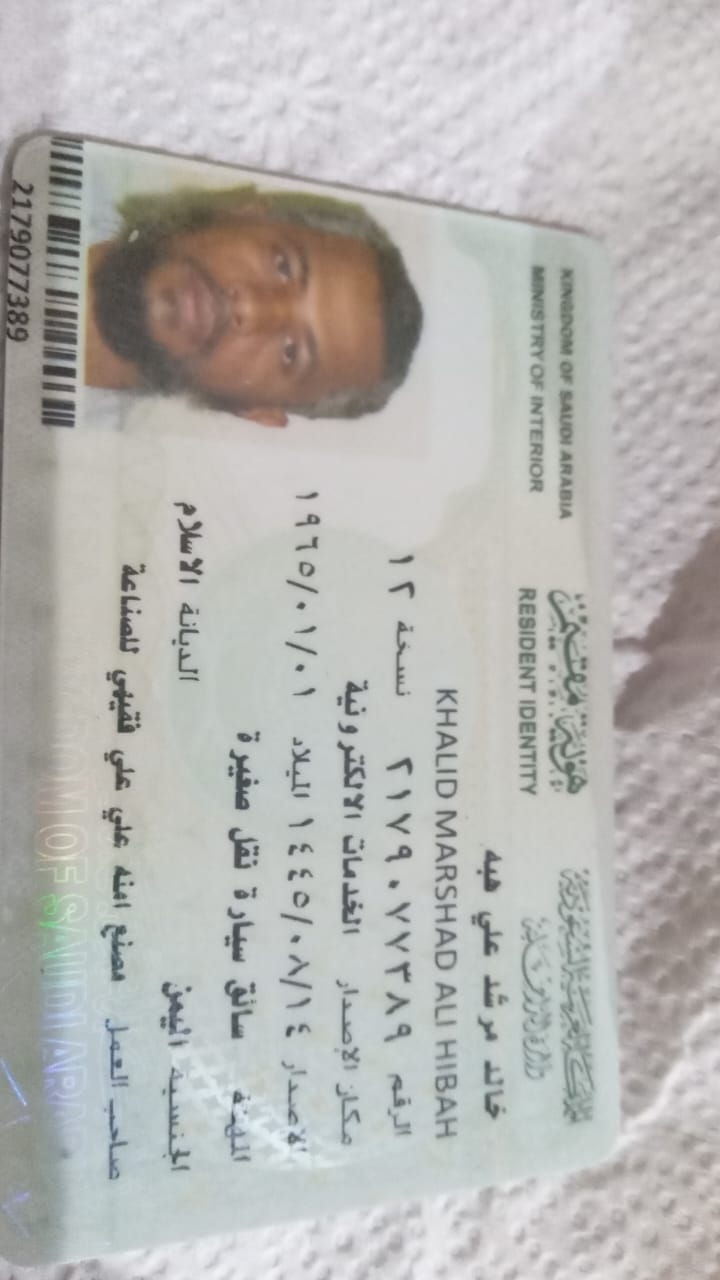 KINGDOM OF SAUDI ARABIA
MINISTRY OF INTERIOR
هوية مقيم
RESIDENT IDENTITY
المملكة العربية السعودية
وزارة الداخلية
خالد مرشد علي هبه
KHALID MARSHAD ALI HIBAH
الرقم ٢١٧٩٠٧٧٣٨٩ نسخة ١٢
مكان الإصدار الخدمات الالكترونية
الاصدار ١٤٤٥/٠٨/١٤ الميلاد ١٩٦٥/٠١/٠١
المهنة سائق سيارة نقل صغيرة
الجنسية اليمن الديانة الاسلام
صاحب العمل مصنع امنه علي علي فقيهي للصناعة
2179077389